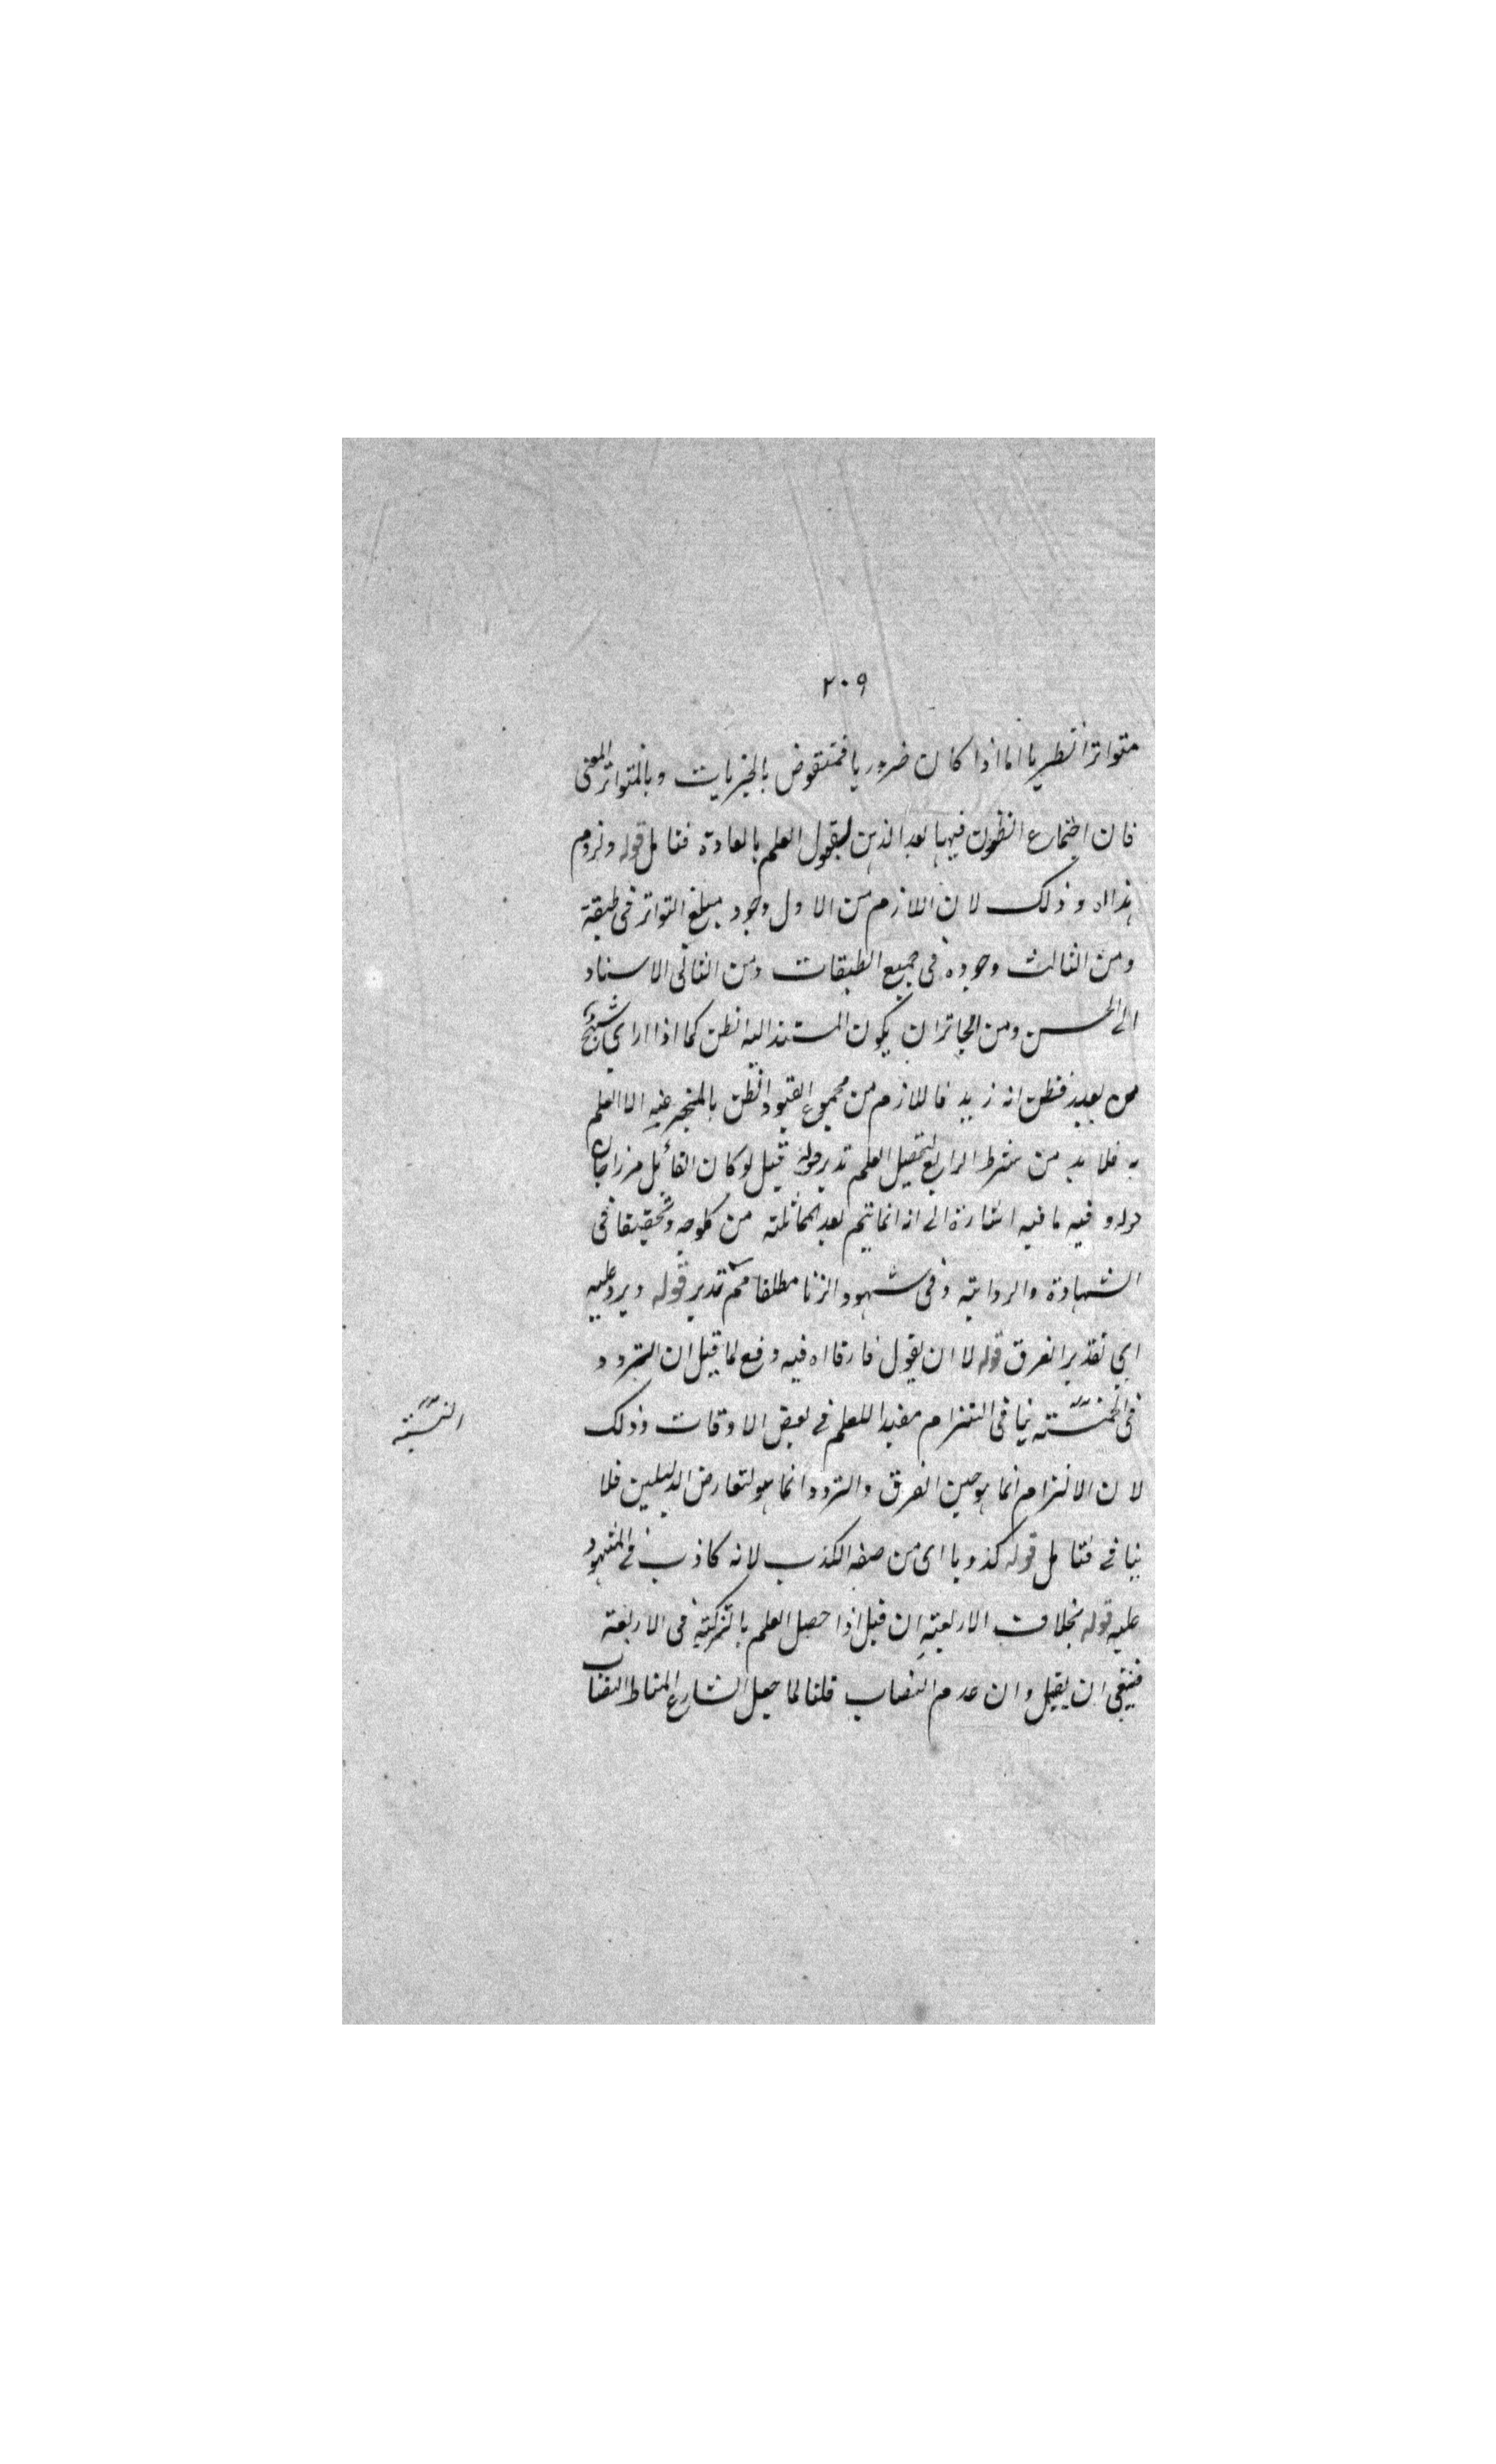 ٢٠٩
متواترا نظريا اما اذا كان ضروريا فمنقوض بالجزيات وبالمتواتر المعنى
فان اجتماع الظنون فيها يعد الذهن لقبول العلم بالعادة فتامل قوله ولزوم
هذا اه وذلك لان اللازم من الاول وجود مبلغ التواتر فى طبقة
ومن الثالث وجوده فى جميع الطبقات ومن الثانى الاسناد
الى الحسن ومن الجائز ان يكون المستند اليه الظن كما اذا راى شبح
من بعيد فظن انه زيد فاللازم من مجموع القيود الظن بالمخبر عنه لا العلم
به فلا بد من شرط الرابع لتحصيل العلم تدبر قوله قيل لو كان القائل مرزاجان
قوله وفيه ما فيه اشارة الى انه انما يتم بعد المماثلة من كل وجه وتحققها فى
الشهادة والرواية وفى شهود الزنا مطلقا مم تدبر قوله ويرد عليه
اى تقدير الفرق قوله لا ان يقول فارقا اه فيه دفع لما قيل ان التردد
فى الخمسة ينافى التزام مفيدا للعلم فى بعض الاوقات وذلك
النسبة
لان الالتزام انما هو حين الفرق والتردد انما هو لتعارض الدليلين فلا
ينافى فتامل قوله كذوبا اى من صفه الكذب لانه كاذب فى المشهود
عليه قوله بخلاف الاربعة ان قيل اذا حصل العلم بالتزكية فى الاربعة
فينبغى ان يقبل وان عدم النصاب قلنا لما جعل الشارع المناط النصاب